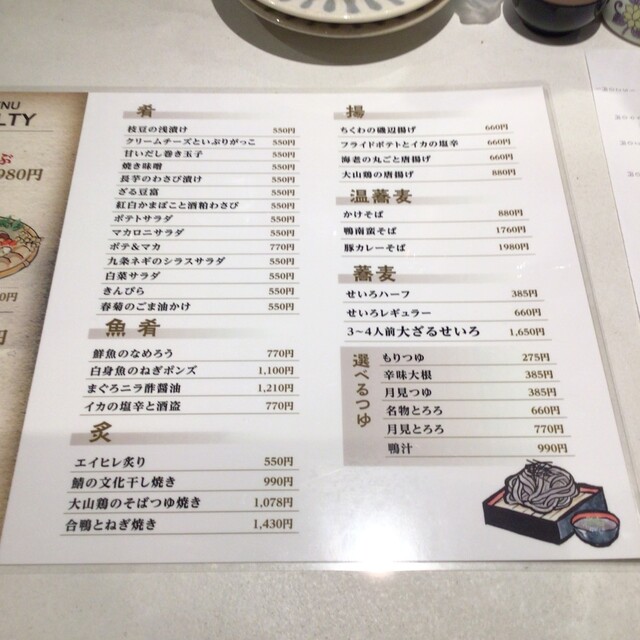 NU
LTY
ぷ
980円
0円
円
肴
枝豆の浅漬け 550円
クリームチーズといぶりがっこ 550円
甘いだし巻き玉子 550円
焼き味噌 550円
長芋のわさび漬け 550円
ざる豆富 550円
紅白かまぼこと酒粕わさび 550円
ポテトサラダ 550円
マカロニサラダ 550円
ポテ&マカ 770円
九条ネギのシラスサラダ 550円
白菜サラダ 550円
きんぴら 550円
春菊のごま油かけ 550円
魚肴
鮮魚のなめろう 770円
白身魚のねぎポンズ 1,100円
まぐろニラ酢醤油 1,210円
イカの塩辛と酒盗 770円
炙
エイヒレ炙り 550円
鯖の文化干し焼き 990円
大山鶏のそばつゆ焼き 1,078円
合鴨とねぎ焼き 1,430円
揚
ちくわの磯辺揚げ 660円
フライドポテトとイカの塩辛 660円
海老の丸ごと唐揚げ 660円
大山鶏の唐揚げ 880円
温蕎麦
かけそば 880円
鴨南蛮そば 1760円
豚カレーそば 1980円
蕎麦
せいろハーフ 385円
せいろレギュラー 660円
3~4人前大ざるせいろ 1,650円
選べるつゆ
もりつゆ 275円
辛味大根 385円
月見つゆ 385円
名物とろろ 660円
月見とろろ 770円
鴨汁 990円